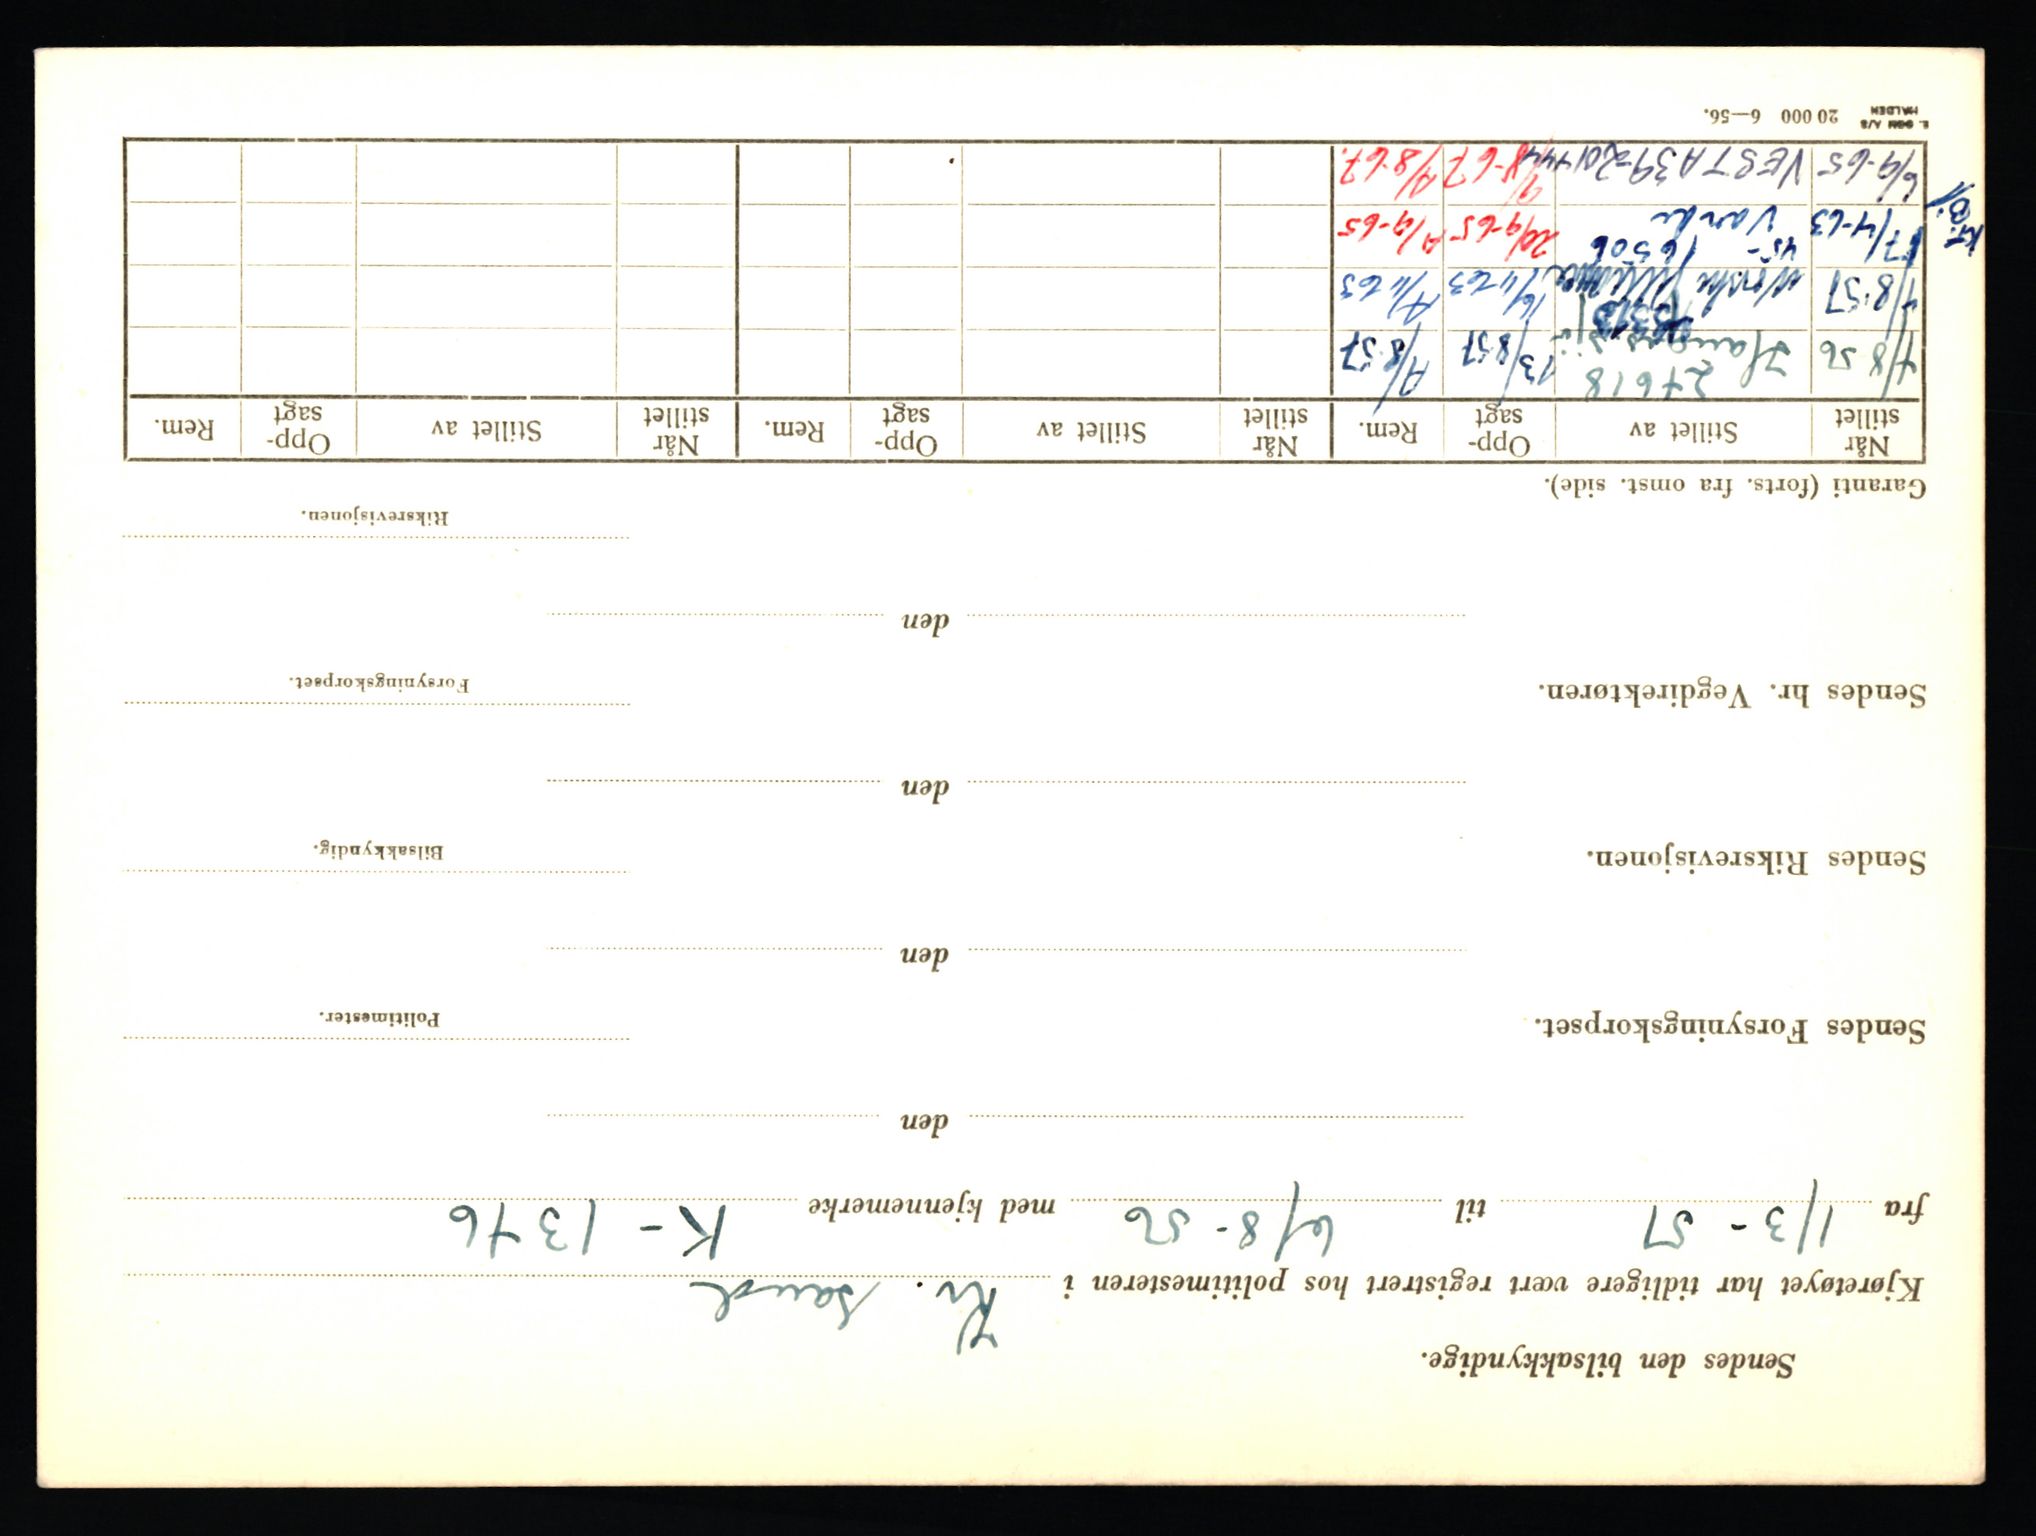 Sendes den bilsakkyndige.
Kjøretøyet har tidligere vært registrert hos politimesteren i Kr. sand
fra 1/3 - 51 til 6/8 - 56 med kjennemerke K - 1376
den
Politimester.
Sendes Forsyningskorpset.
den
Bilsakkyndig.
Sendes Riksrevisjonen.
den
Forsyningskorpset.
Sendes hr. Vegdirektøren.
den
Riksrevisjonen.
Garanti (forts. fra omst. side).
Når stillet Stillet av Opp- sagt Rem. Når stillet Stillet av Opp- sagt Rem. Når stillet Stillet av Opp- sagt Rem.
7/8 56 27618 13/8 57 A/8.57
/8.57 Norske 16/4 63 A/4 63
17/4-63 Varde 45- 16506 20/9-65 A/9-65
6/9-65 VESTA 39-201744 9/8-67 A/8-67.
E. SEM A/S HALDEN 20 000 6—56.